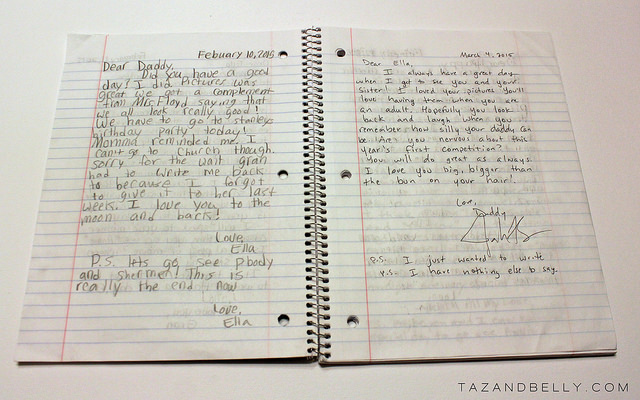 Febuary 10, 2015
Dear Daddy,
Did you have a good
day? I did Pictures was
great we got a complement
from Mrs Floyd saying that
we all look really good!
We have to go to stanleys
birthday party today!
Mommd reminded me I
can't go to Church though.
sorry for the wait gran
had to write me back
to because I forgot
to give it to her last
week. I love you to the
moon and back!
Love,
Ella
P.S. lets go see Pbody
and shermen! This is
really the end now
Love,
Ella
March 4, 2015
Dear Ella,
I always have a great day
when I get to see you and your
sister! I loved your pictures. You'll
love having them when you are
an adult. Hopefully you look
back and laugh when you
remember how silly your daddy can
be. Are you nervous about this
year's first competition?
You will do great as always.
I love you big, bigger than
the bun on your hair!
Love,
Daddy
P.S. I just wanted to write
P.S. I have nothing else to say.
TAZANDBELLY.COM